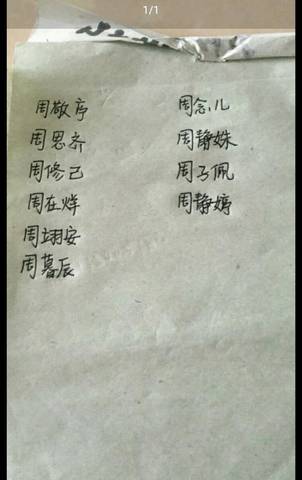 1/1
周敬序
周思齐
周修己
周在烨
周翊安
周暮辰
周念儿
周静姝
周子佩
周静婷